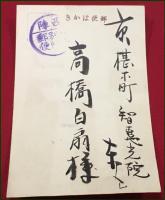 郵便はかき
京 椹木町 智恵光院
東入
高橋白扇様